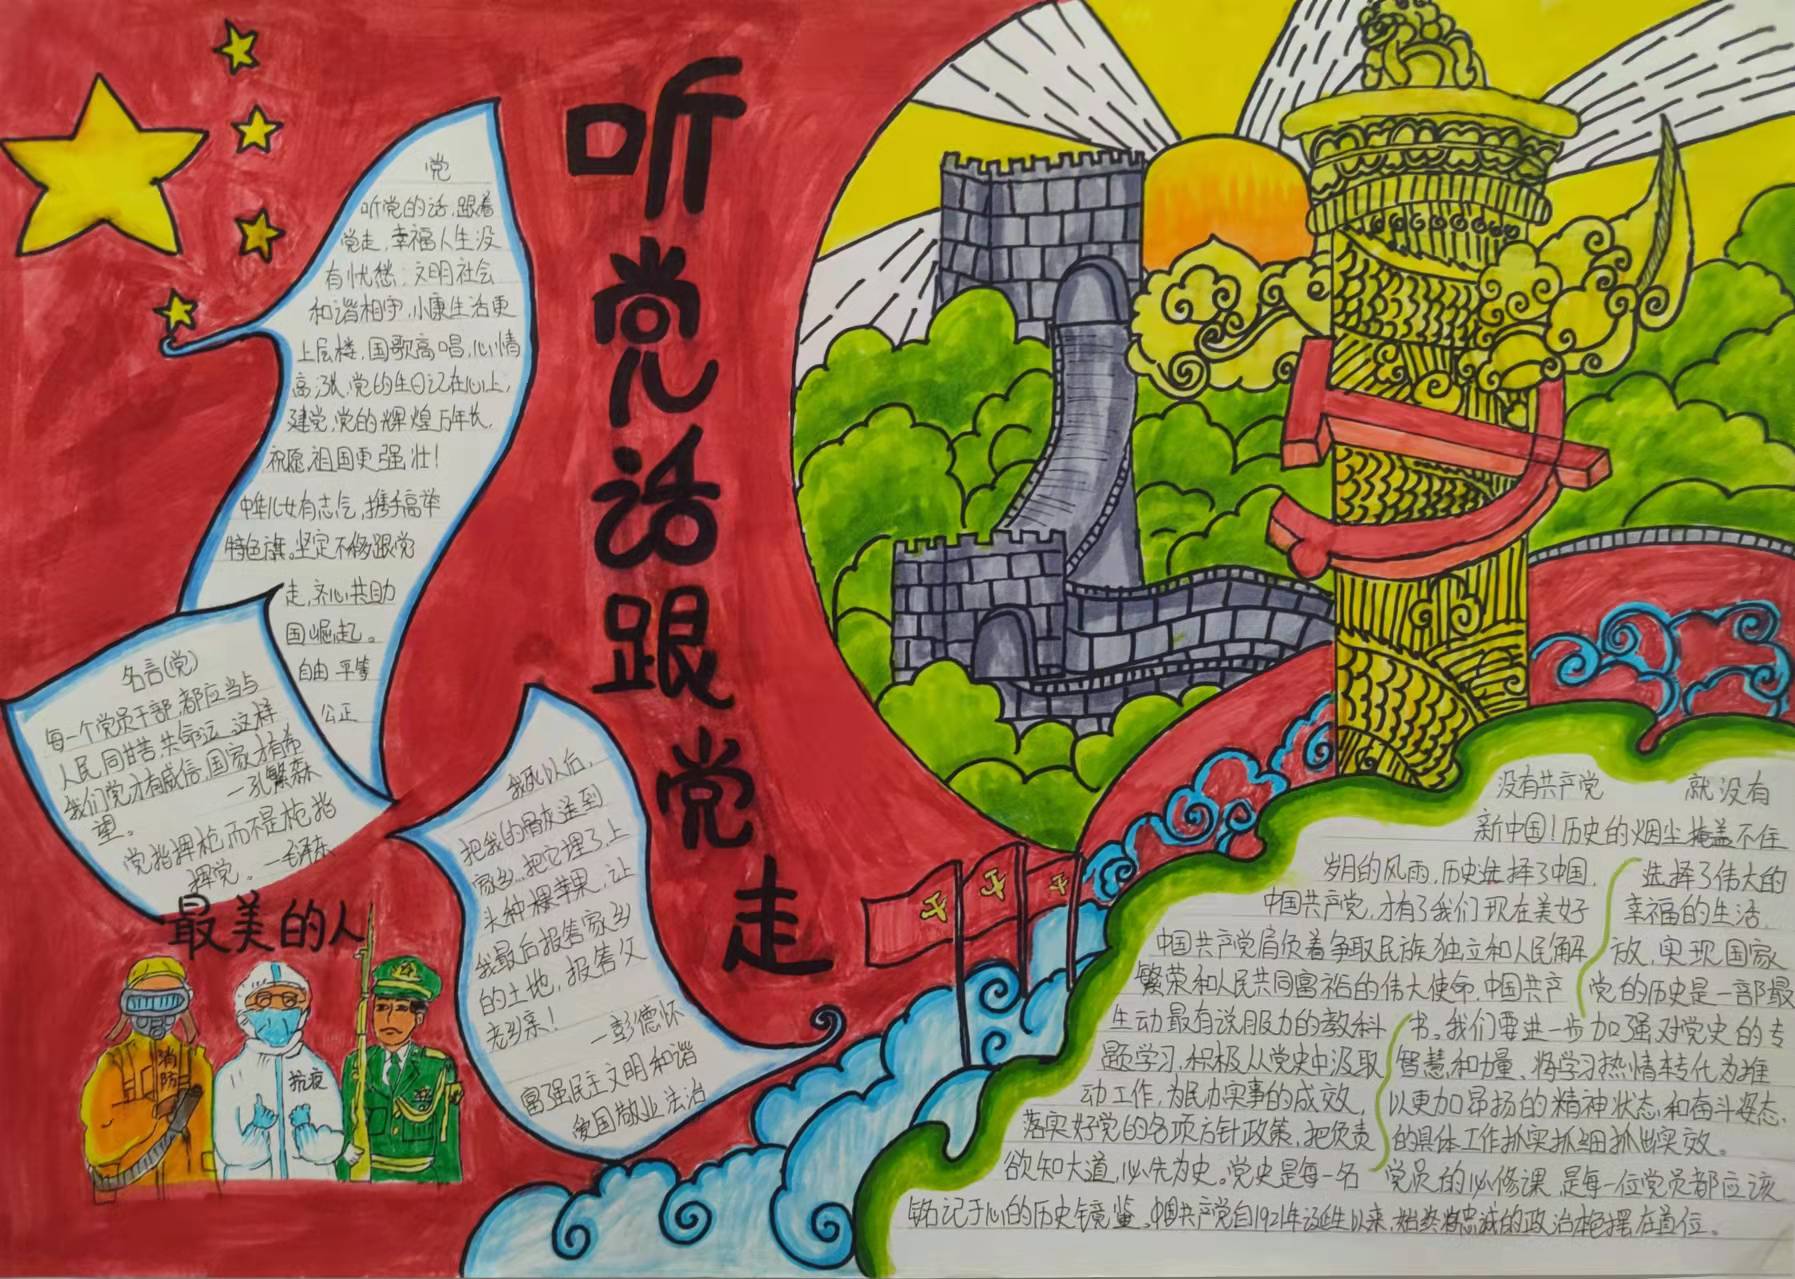 听党话跟党走
党
听党的话,跟着
党走,幸福人生没
有忧愁;文明社会
和谐相守,小康生活更
上层楼,国歌高唱,心情
高涨,党的生日记在心上,
建党,党的辉煌万年长,
祝愿,祖国更强壮!
中华儿女有志气,携手高举
特色旗。坚定不移跟党
走,齐心共助
国崛起。
自由 平等
公正
名言(党)
每一个党员干部,都应当与
人民同甘苦,共命运,这样
我们党才有威信,国家才有希
望。 —孔繁森
党指挥枪,而不是枪指
挥党。 —毛泽东
我死以后,
把我的骨灰送到
家乡...把它埋了,上
头种棵苹果,让
我最后报答家乡
的土地,报答父
老乡亲!
—彭德怀
富强民主文明和谐
爱国敬业法治
最美的人
消防
抗疫
没有共产党 就没有
新中国!历史的烟尘掩盖不住
岁月的风雨,历史选择了中国, 选择了伟大的
中国共产党,才有了我们现在美好 幸福的生活,
中国共产党肩负着争取民族独立和人民解 放,实现国家
繁荣和人民共同富裕的伟大使命,中国共产 党的历史是一部最
生动最有说服力的教科 书。我们要进一步加强对党史的专
题学习,积极从党史中汲取 智慧和力量、将学习热情转化为推
动工作,为民办实事的成效, 以更加昂扬的精神状态和奋斗姿态,
落实好党的各项方针政策,把负责 的具体工作抓实抓细抓出实效。
欲知大道,必先为史。党史是每一名 党员的必修课,是每一位党员都应该
铭记于心的历史镜鉴。中国共产党自1921年诞生以来,始终将忠诚的政治品格摆在首位。